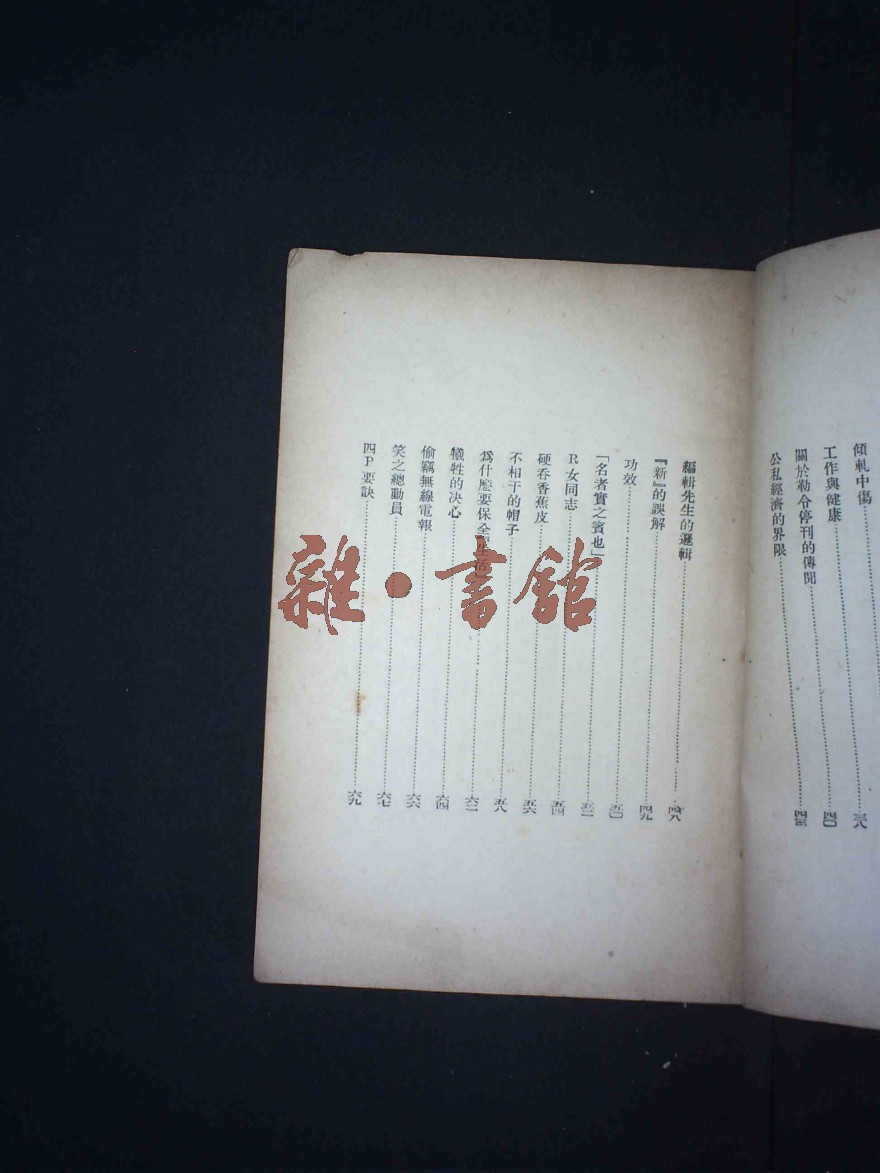 傾軋中傷……三八
工作與健康……四〇
關於勒令停刊的傳聞……四三
公私經濟的界限
編輯先生的邏輯……四八
『新』的誤解……四九
功效……五〇
「名者實之賓也」……五二
R女同志……五四
硬吞香蕉皮……五六
不相干的帽子……五八
爲什麽要保全『生活』……六二
犧牲的决心……六四
偷竊無線電報……六六
笑之總動員……六七
四P要訣……六九
雜·書館